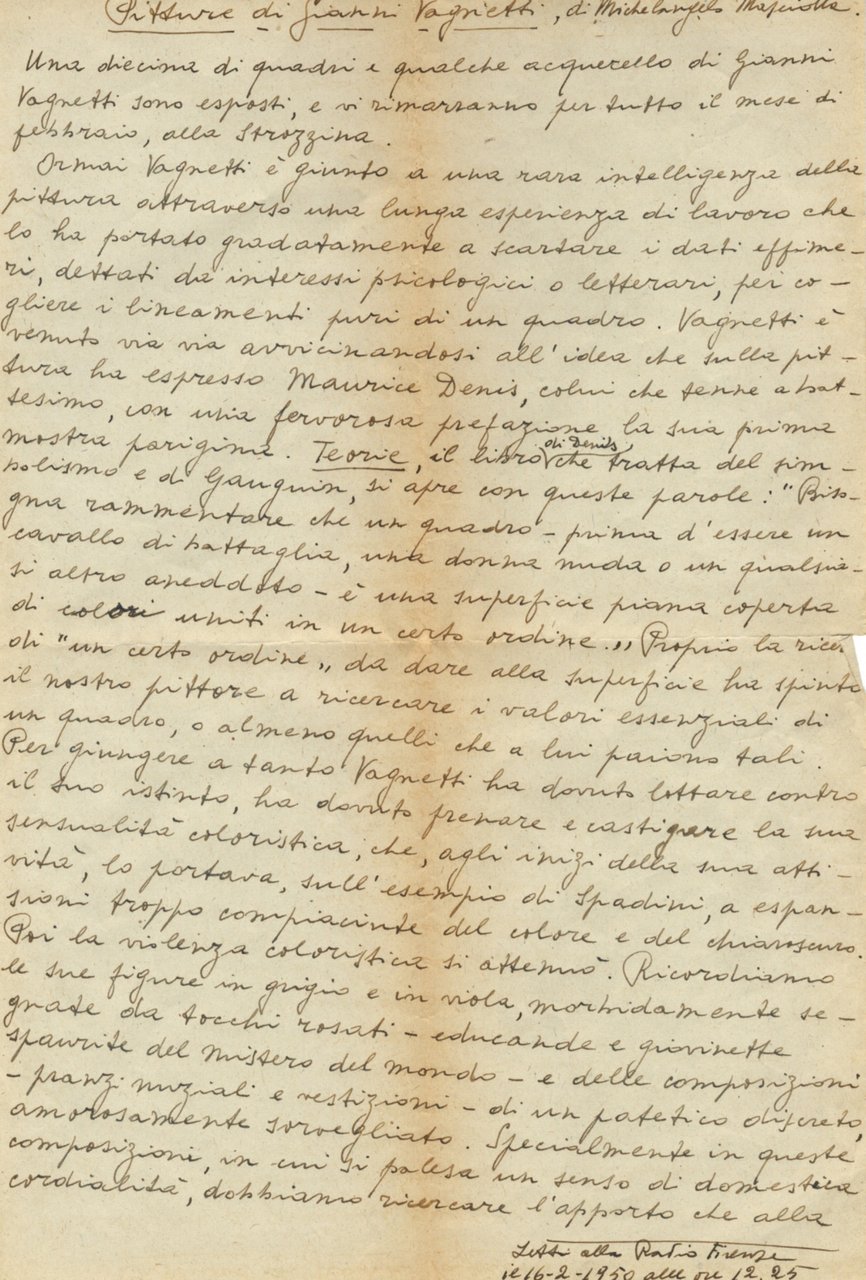 Pitture di Gianni Vagnetti, di Michelangelo Masciotta.
Una diecina di quadri e qualche acquerello di Gianni
Vagnetti sono esposti, e vi rimarranno per tutto il mese di
febbraio, alla Strozzina.
Ormai Vagnetti è giunto a una rara intelligenza della
pittura attraverso una lunga esperienza di lavoro che
lo ha portato gradatamente a scartare i dati effime-
ri, dettati da interessi psicologici o letterari, per co-
gliere i lineamenti puri di un quadro. Vagnetti è
venuto via via avvicinandosi all'idea che sulla pit-
tura ha espresso Maurice Denis, colui che tenne a bat-
tesimo, con una fervorosa prefazione la sua prima
mostra parigina. Teorie, il libro di Denis, che tratta del sim-
bolismo e di Gauguin, si apre con queste parole: "Biso-
gna rammentare che un quadro - prima d'essere un
cavallo di battaglia, una donna nuda o un qualsia-
si altro aneddoto - è una superficie piana coperta
di colori uniti in un certo ordine.„ Proprio la ricer
di "un certo ordine„ da dare alla superficie ha spinto
il nostro pittore a ricercare i valori essenziali di
un quadro, o almeno quelli che a lui paiono tali.
Per giungere a tanto Vagnetti ha dovuto lottare contro
il suo istinto, ha dovuto frenare e castigare la sua
sensualità coloristica, che, agli inizi della sua atti-
vità, lo portava, sull'esempio di Spadini, a espan-
sioni troppo compiaciute del colore e del chiaroscuro.
Poi la violenza coloristica si attenuò. Ricordiamo
le sue figure in grigio e in viola, morbidamente se-
gnate da tocchi rosati - educande e giovinette
spaurite del mistero del mondo - e delle composizioni
- pranzi nuziali e vestizioni - di un patetico discreto,
amorosamente sorvegliato. Specialmente in queste
composizioni, in cui si palesa un senso di domestica
cordialità, dobbiamo ricercare l'apporto che alla
Letti alla Radio Firenze
il 16-2-1950 alle ore 12.25